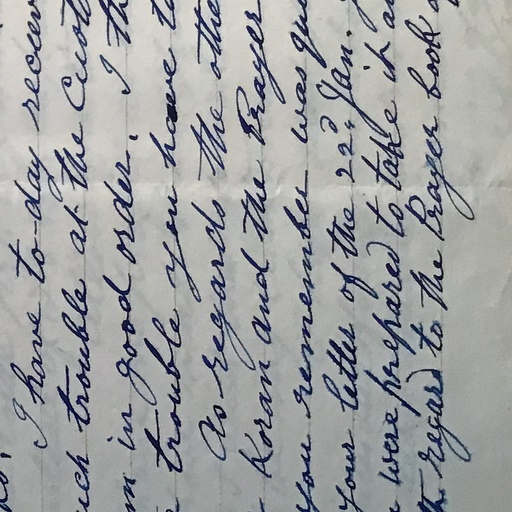 I have to-day receiv
uch trouble at the Cust
m in good order. I th
trouble you have t
As regards the othe
Koran and the Prayer
you remember was qu
your letter of the 22d. Jan.
were prepared to take it a
th regard to the Prayer book